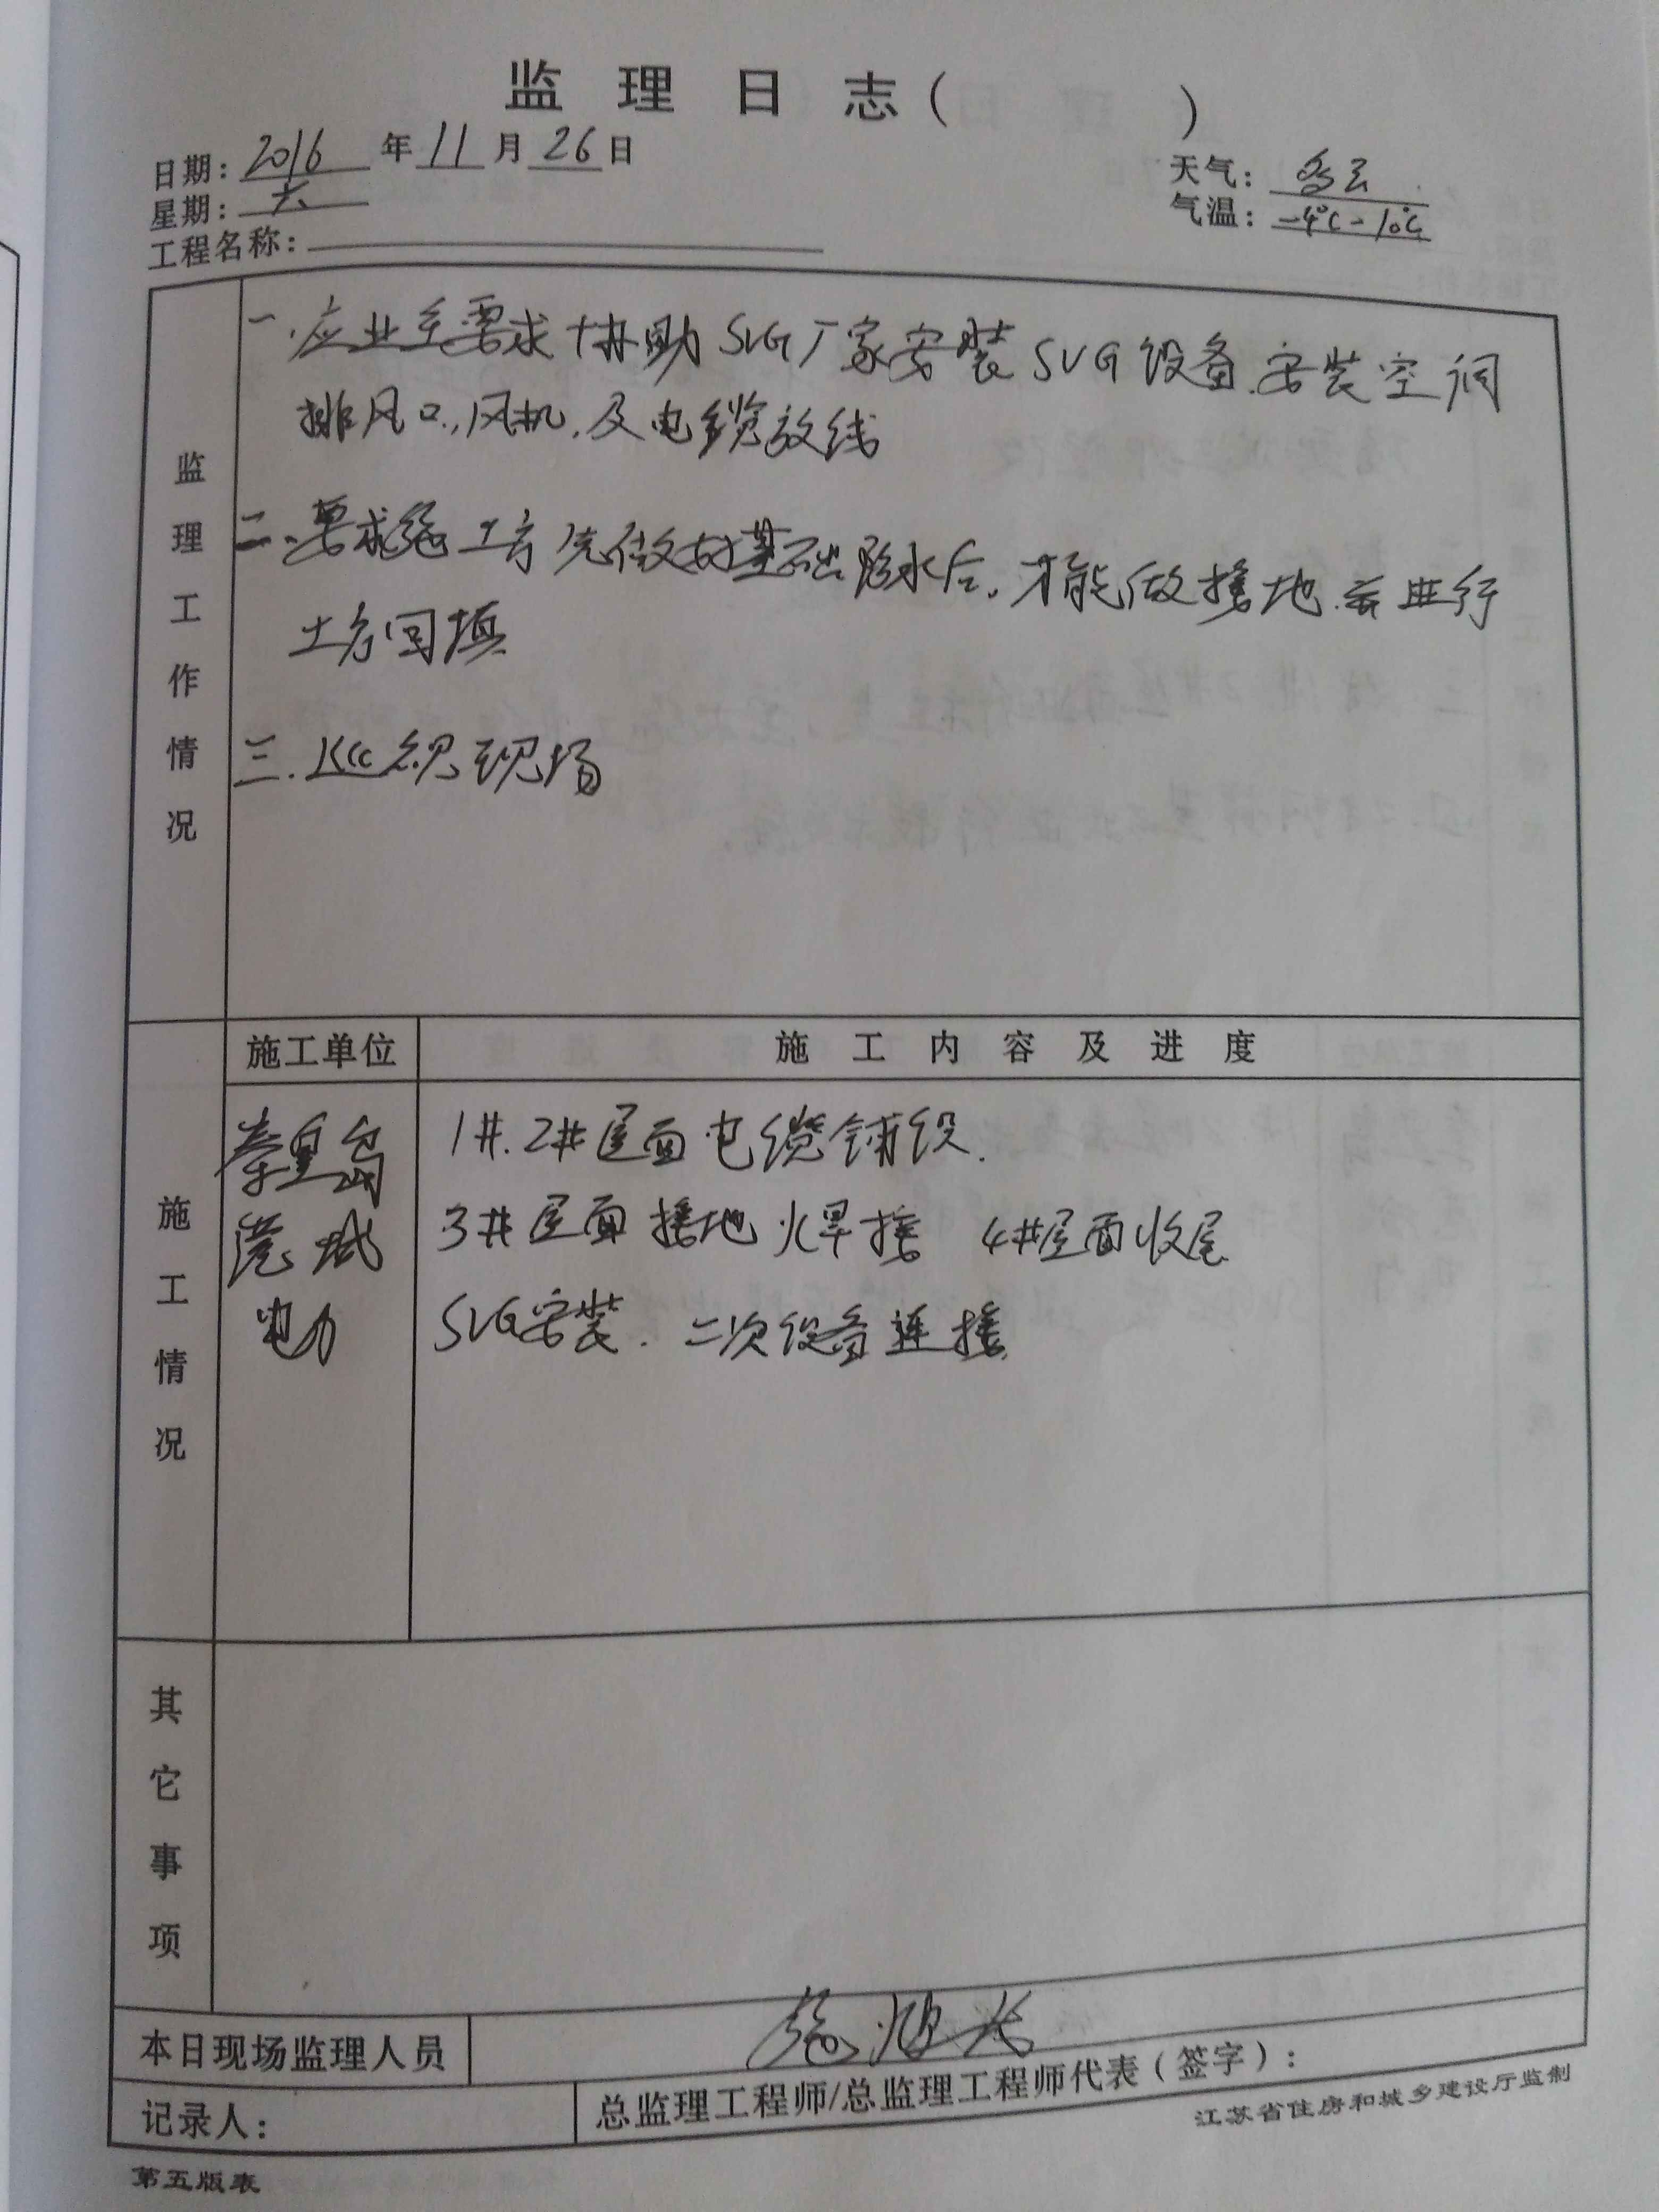 监理日志(　　)
日期：2016年11月26日
天气：多云
星期：六
气温：-4℃-10℃
工程名称：
监理工作情况
一.应业主要求协助SVG厂家安装SVG设备.安装空调
排风口,风机,及电缆放线
二、要求施工方先做好基础降水后,才能做接地.并进行
土方回填
三.巡视现场
施工情况
施工单位
施工内容及进度
秦皇岛
港城
电力
1#.2#屋面电缆铺设.
3#屋面接地焊接 4#屋面收尾
SVG安装.二次设备连接
其它事项
本日现场监理人员
记录人：
总监理工程师/总监理工程师代表(签字)：
江苏省住房和城乡建设厅监制
第五版表